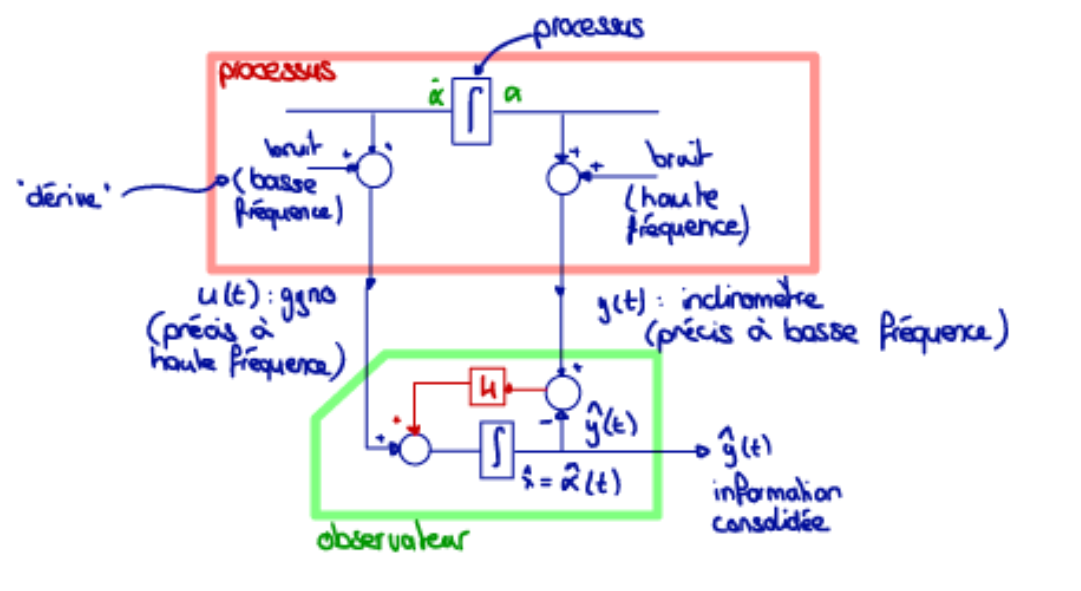 processus
processus
α̇ ∫ a
bruit
+ +
'dérive'
(basse
fréquence)
+ +
bruit
(haute
fréquence)
u(t) : gyro
(précis à
haute fréquence)
y(t) : inclinomètre
(précis à basse fréquence)
+
L
+
-
ŷ(t)
+
∫
x̂ = α̂(t)
ŷ(t)
information
consolidée
observateur